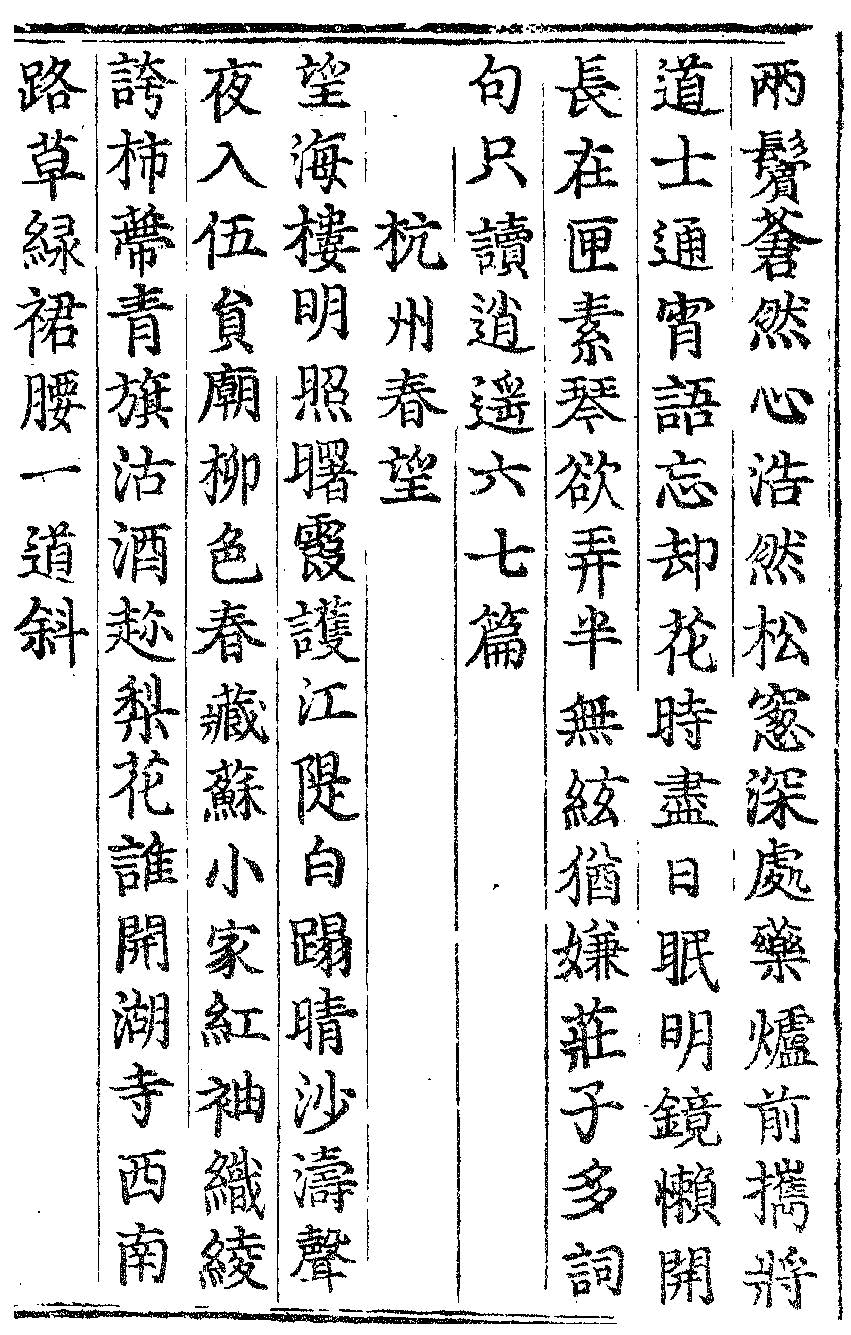 兩鬢蒼然心浩然松窓深處藥爐前攜將
道士通宵語忘却花時盡日眠明鏡懶開
長在匣素琴欲弄半無絃猶嫌莊子多詞
句只讀逍遥六七篇
杭州春望
望海樓明照曙霞護江隄白蹋晴沙濤聲
夜入伍員廟柳色春藏蘇小家紅袖織綾
誇柿蔕青旗沽酒趂梨花誰開湖寺西南
路草緑裙腰一道斜